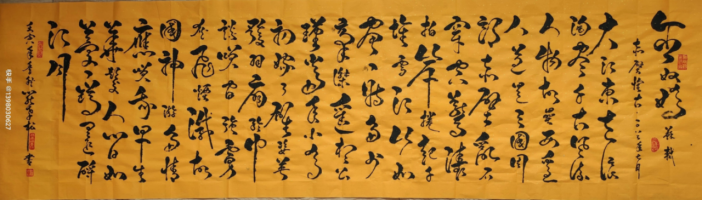 念奴娇 苏轼
赤壁怀古
大江东去浪
淘尽千古风流
人物故垒西边
人道是三国周
郎赤壁乱石
穿空惊涛
拍岸捲起千
堆雪江山如
画一时多少
豪杰遥想公
瑾当年小乔
初嫁了雄姿英
发羽扇纶巾
谈笑间强虏
灰飞烟灭故
国神游多情
应笑我早生
华发人间如
梦一尊还酹
江月
@1398030627